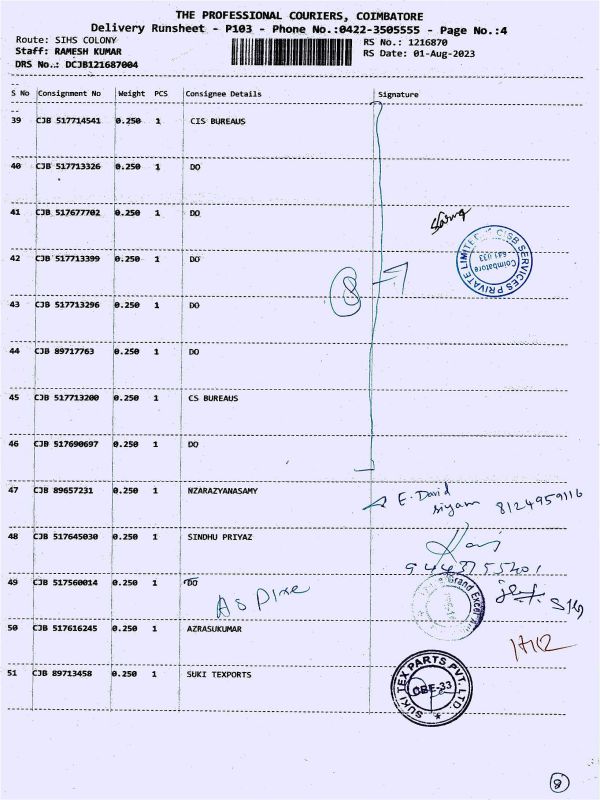 THE PROFESSIONAL COURIERS, COIMBATORE
Delivery Runsheet - P103 - Phone No.:0422-3505555 - Page No.:4
Route: SIHS COLONY
RS No.: 1216870
Staff: RAMESH KUMAR
RS Date: 01-Aug-2023
DRS No.: DCJB121687004
S No Consignment No Weight PCS Consignee Details Signature
39 CJB 517714541 0.250 1 CIS BUREAUS
40 CJB 517713326 0.250 1 DO
41 CJB 517677702 0.250 1 DO
CISB SERVICES PRIVATE LIMITED
Coimbatore
641 033
42 CJB 517713399 0.250 1 DO
8
43 CJB 517713296 0.250 1 DO
44 CJB 89717763 0.250 1 DO
45 CJB 517713200 0.250 1 CS BUREAUS
46 CJB 517690697 0.250 1 DO
47 CJB 89657231 0.250 1 NZARAZYANASAMY
E. David
siyam 8124959116
48 CJB 517645030 0.250 1 SINDHU PRIYAZ
49 CJB 517560014 0.250 1 DO
Grand
50 CJB 517616245 0.250 1 AZRASUKUMAR
51 CJB 89713458 0.250 1 SUKI TEXPORTS
SUKI TEX PARTS PVT. LTD.
CBE-33
8